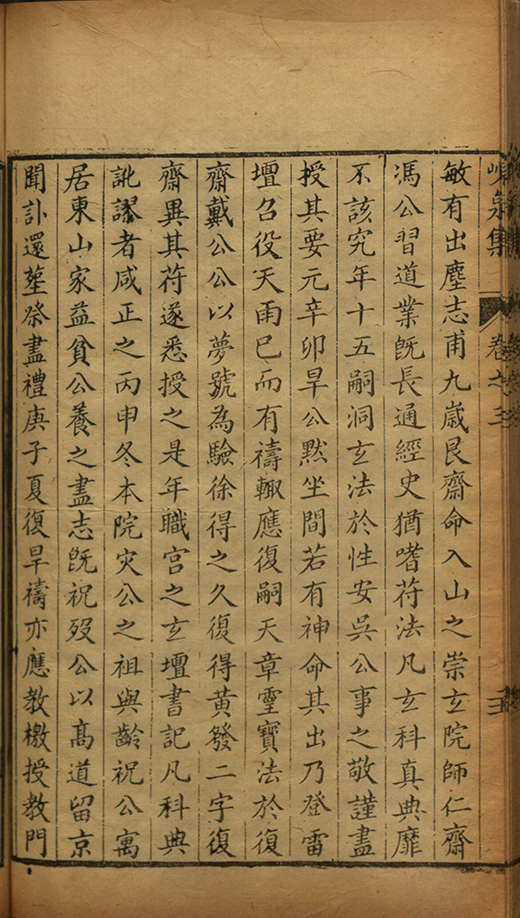 峴泉集
卷之三
敏有出塵志甫九歲艮齋命入山之崇玄院師仁齋
馮公習道業旣長通經史猶嗜符法凡玄科真典靡
不該究年十五嗣洞玄法於性安吳公事之敬謹盡
授其要元辛卯旱公黙坐間若有神命其出乃登雷
壇召役天雨巳而有禱輙應復嗣天章靈寶法於復
齋戴公公以夢號為驗徐得之久復得黃發二字復
齋異其符遂悉授之是年職宮之玄壇書記凡科典
訛謬者咸正之丙申冬本院灾公之祖與齡祝公寓
居東山家益貧公養之盡志旣祝歿公以髙道留京
聞訃還塟祭盡禮庚子夏復旱禱亦應教檄授教門